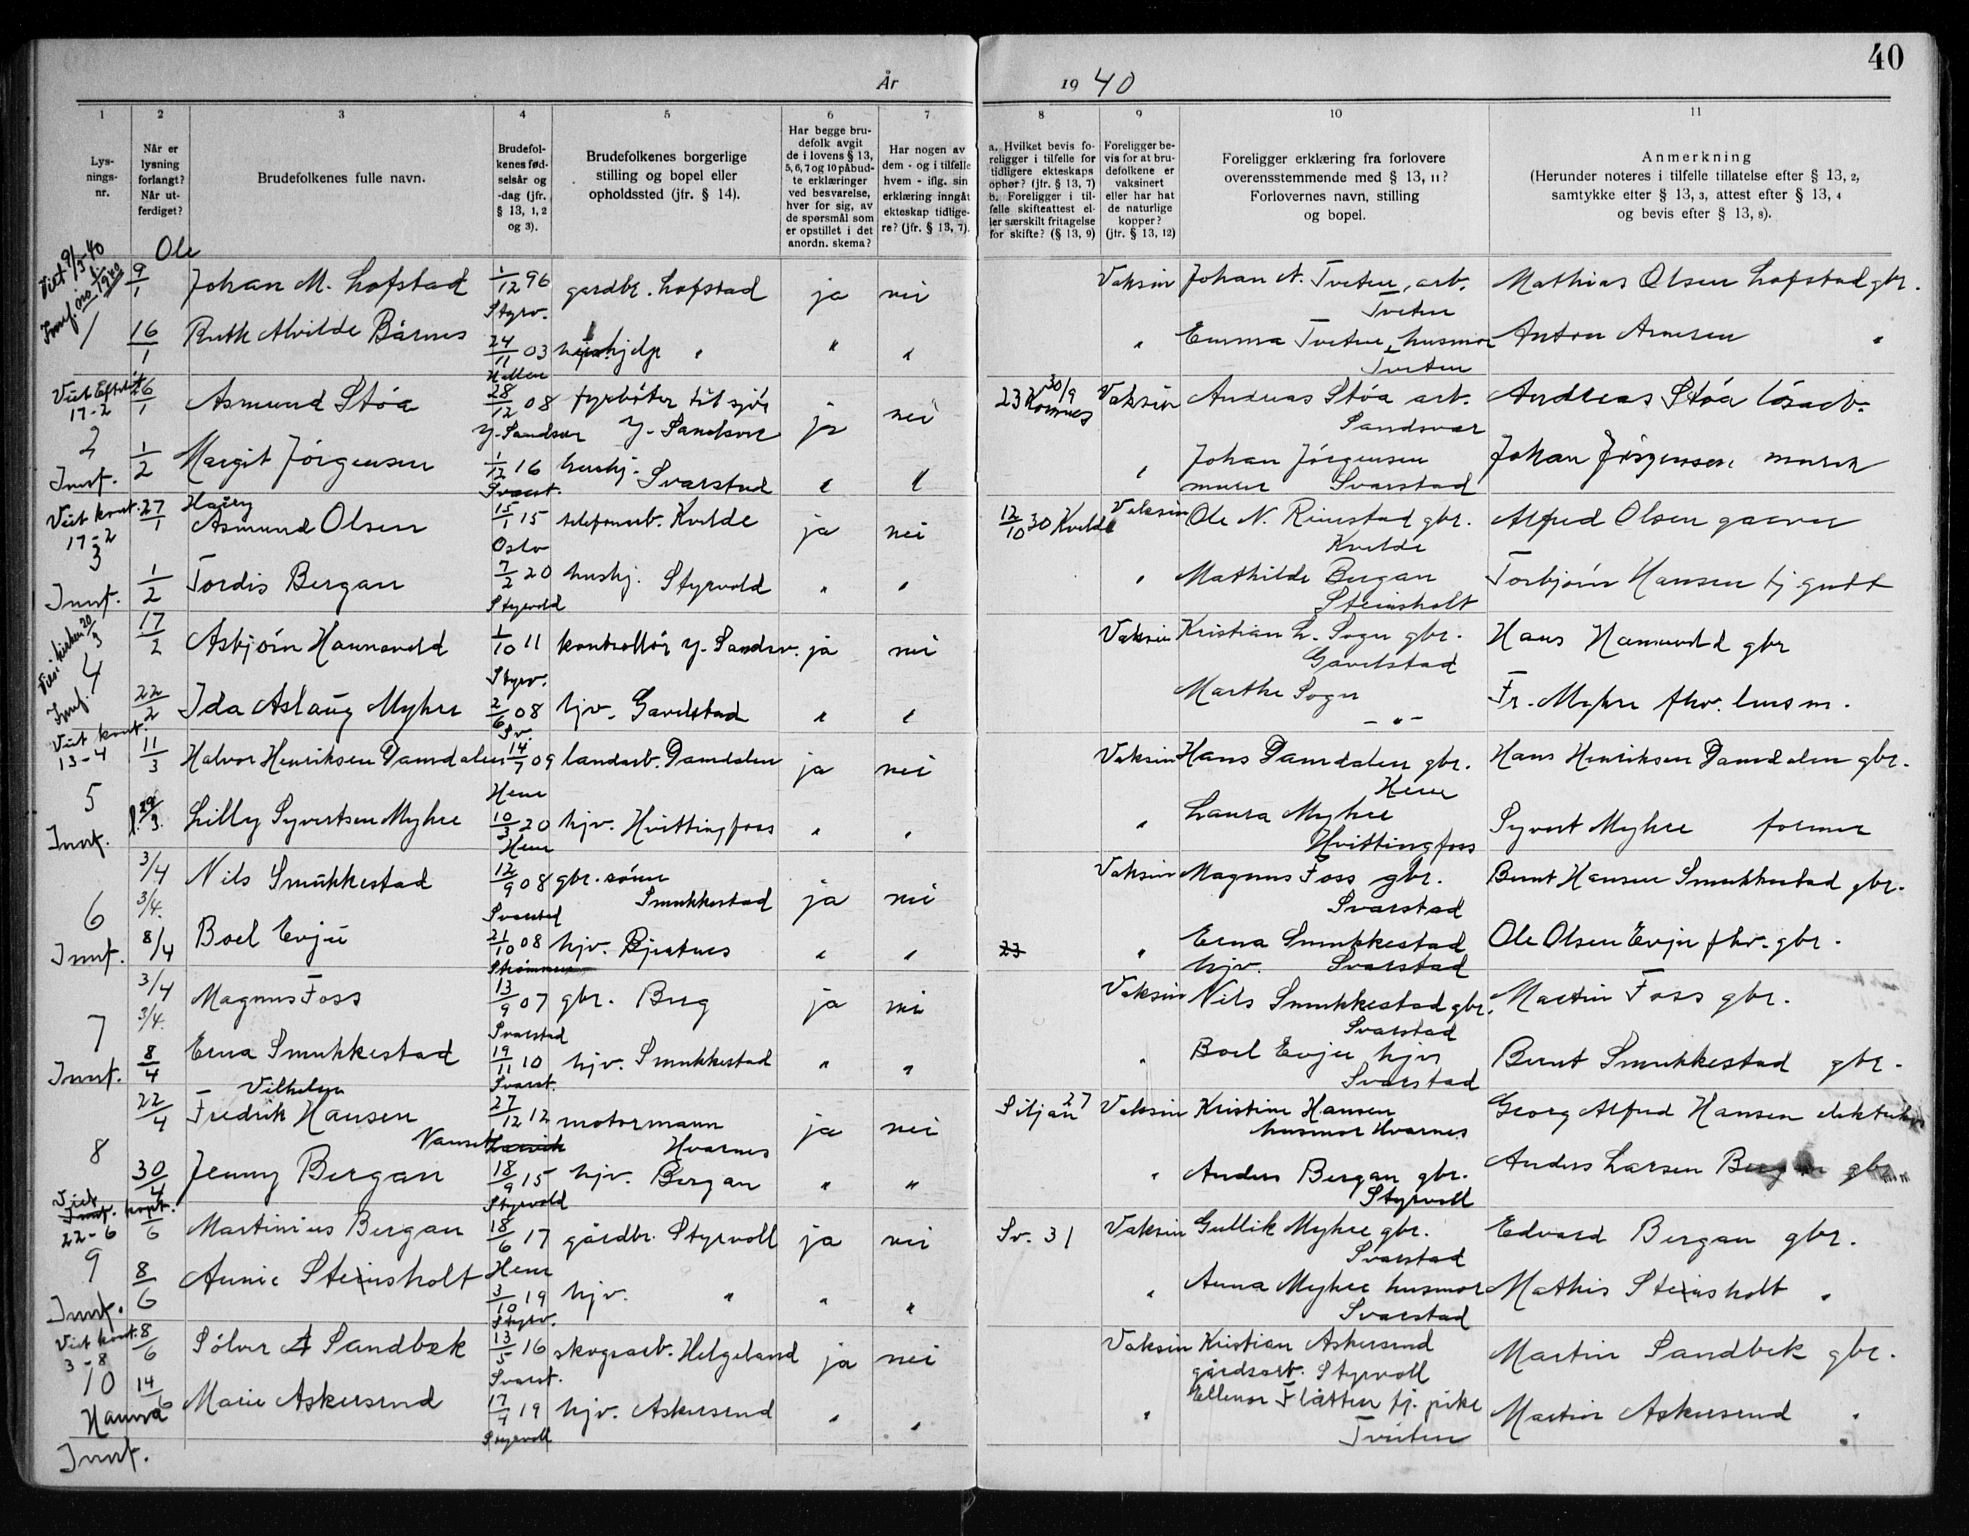 40
År 1940
1 2 3 4 5 6 7 8 9 10 11
Lysningsnr.
Når er lysning forlangt? Når utferdiget?
Brudefolkenes fulle navn.
Brudefolkenes fødselsår og -dag (jfr. § 13, 1, 2 og 3).
Brudefolkenes borgerlige stilling og bopel eller opholdssted (jfr. § 14).
Har begge brudefolk avgit de i lovens § 13, 5, 6, 7 og 10 påbudte erklæringer ved besvarelse, hver for sig, av de spørsmål som er opstillet i det anordn. skema?
Har nogen av dem - og i tilfelle hvem - iflg. sin erklæring inngåt ekteskap tidligere? (jfr. § 13, 7).
a. Hvilket bevis foreligger i tilfelle for tidligere ekteskaps ophør? (jfr. § 13, 7) b. Foreligger i tilfelle skifteattest eller særskilt fritagelse for skifte? (§ 13, 9)
Foreligger bevis for at brudefolkene er vaksinert eller har hat de naturlige kopper? (jfr. § 13, 12)
Foreligger erklæring fra forlovere overensstemmende med § 13, 11? Forlovernes navn, stilling og bopel.
Anmerkning (Herunder noteres i tilfelle tillatelse efter § 13, 2, samtykke efter § 13, 3, attest efter § 13, 4 og bevis efter § 13, 8).
Ole
1 9/1 Johan M. Lofstad 1/12 96 Styrv. gardbr. Lofstad ja nei Vaksin Johan N. Tveten, arb. Tveten Mathias Olsen Lofstad gbr.
16/1 Ruth Alvilde Bårnes 24/11 03 hushjelp " " " " Emma Tveten, husmor Tveten Anton Arnesen "
Viet
17-2
2 26/1 Asmund Stóa 28/12 08 Y-Sandsvær fyrbøter til sjøs Y-Sandsvær ja nei 23 Komnes 30/9 Vaksin Andreas Stóa arb. Sandsvær Andreas Stóa løsarb.
Innf. 1/2 Margit Jörgensen 1/12 16 Svarst. hushj. Svarstad " " " Johan Jörgensen murer Svarstad Johan Jörgensen murer
Viet kont. 17-2
3 27/1 Harry Asmund Olsen 15/1 15 Oslo telefonarb. Kvelde ja nei 12/10 30 Kvelde Vaksin Ole N. Rimstad gbr. Kvelde Alfred Olsen garver
Innf. 1/2 Tordis Bergan 7/2 20 Styrvold hushj. Styrvold " " " Mathilde Bergan Steinsholt Torbjörn Hansen tj.gutt
4 17/2 Asbjörn Hannevold 1/10 11 Styrv. kontrollör Y-Sandsv. ja nei Vaksin Kristian L. Sogn gbr. Gavelstad Hans Hannevold gbr
Innf. 22/2 Ida Aslaug Myhre 2/6 08 Sv. hjv. Gavelstad " " Marthe Sogn - " - Fr. Myhre fhv. lensm.
Viet kont. 13-4
5 11/3 Halvor Henriksen Damdalen 14/7 09 Hem landarb. Damdalen ja nei Vaksin Hans Damdalen gbr. Hem Hans Henriksen Damdalen gbr.
Innf. Lilly Syvertsen Myhre 10/3 20 Hem hjv. Hvittingfoss " " " Laura Myhre Hvittingfoss Syvert Myhre former
6 3/4 3/4. Nils Smukkestad 12/9 08 Svarstad gbr.sönn Smukkestad ja nei Vaksin Magnus Foss gbr. Svarstad Bernt Hansen Smukkestad gbr.
Innf. 8/4 Boel Evju 21/10 08 hjv. Bjertnes " " 23 " Erna Smukkestad hjv. Svarstad Ole Olsen Evju fhv. gbr.
7 3/4 3/4. Magnus Foss 13/9 07 Svarstad gbr. Berg ja nei Vaksin Nils Smukkestad gbr. Svarstad Martin Foss gbr.
Innf. 8/4 Erna Smukkestad 19/11 10 Svarst. hjv. Smukkestad " " " Boel Evju hjv Svarstad Bernt Smukkestad gbr.
8 22/4 Fredrik Vilhelm Hansen 27/12 12 Larvik motormann Hvarnes ja nei Siljan 27 Vaksin Kristine Hansen husmor Hvarnes Georg Alfred Hansen
30/4 Jenny Bergan 18/9 15 Styrvold hjv. Bergan " " " Anders Bergan gbr. Styrvoll Anders Larsen Bergan gbr
Viet kont. 22-6
9 /6 Martinius Bergan 18/6 17 Hem gårdbr. Styrvoll ja nei Sv. 31 Vaksin Gullik Myhre gbr. Svarstad Edvard Bergan gbr.
Innf. 8/6 Annie Steinsholt 3/10 19 Styrv. hjv. " " " " Anna Myhre husmor Svarstad Mathis Steinsholt "
Viet kont. 3-8
10 8/6 Sölver A Sandbæk 13/5 16 Svarst. skogsarb. Helgeland ja nei Vaksin Kristian Askersrud gårdsarb. Styrvoll Martin Sandbek gbr.
Hanna 14/6 Marie Askersrud 17/4 19 Styrvoll hjv. Askersrud " " " Ellenor Flåtten tj.pike Tveiten Martin Askersrud "
Innf.